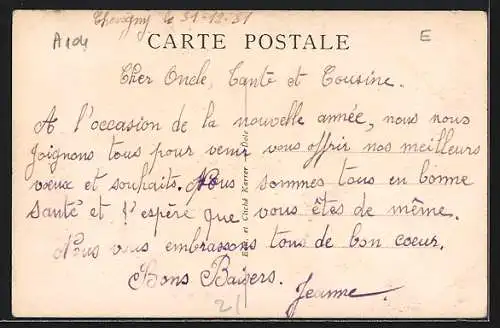 Chevigny le 31-12-31
A 104
E
CARTE POSTALE
Cher Oncle, Tante et Cousine.
A l'occasion de la nouvelle année, nous nous
joignons tous pour venir vous offrir nos meilleurs
vœux et souhaits. Nous sommes tous en bonne
santé et j'espère que vous êtes de même.
Nous vous embrassons tous de bon coeur.
Bons Baisers.
Jeanne.
21
Edit. et Cliché Karrer - Dole